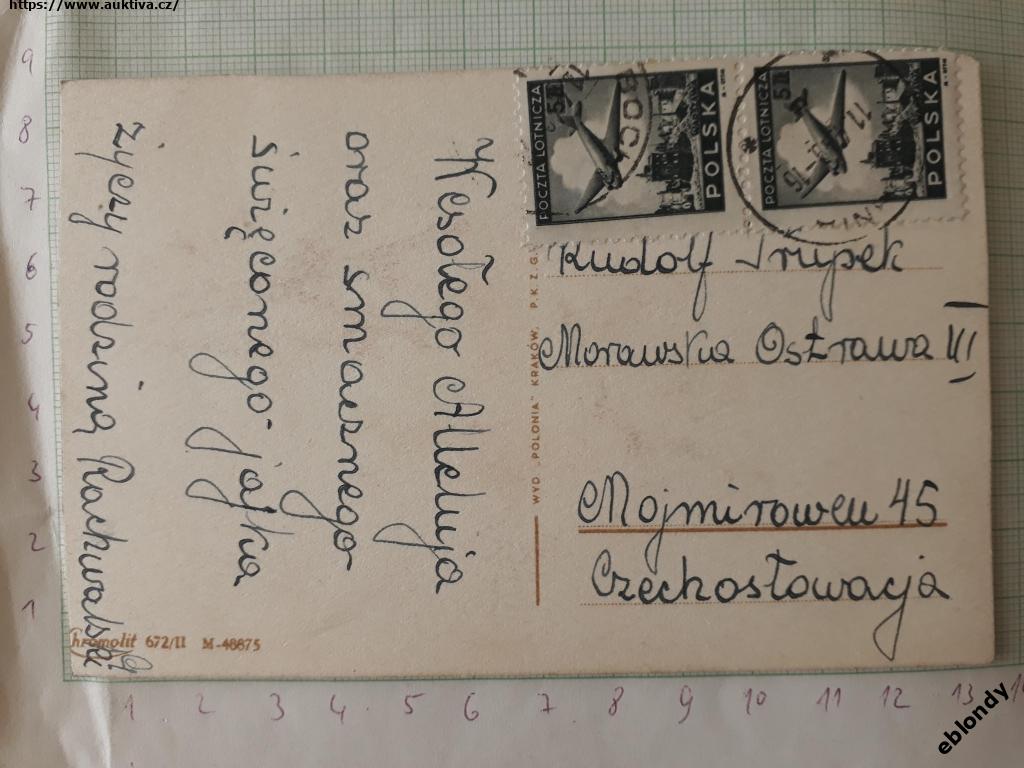 https://www.auktiva.cz/
Wesołego Alleluja
oraz smacznego
święconego jajka
życzy rodzina Rachwalska
Chromolit 672/II M-46875
WYD „POLONIA" KRAKÓW, P.K.Z.G.
POCZTA LOTNICZA
5
POLSKA
POCZTA LOTNICZA
5
POLSKA
Rudolf
Morawska Ostrawa VII
Mojmirowcu 45
Czechosłowacja
9
8
7
6
5
4
3
2
1
1 2 3 4 5 6 7 8 9 10 11 12 13
eblondy